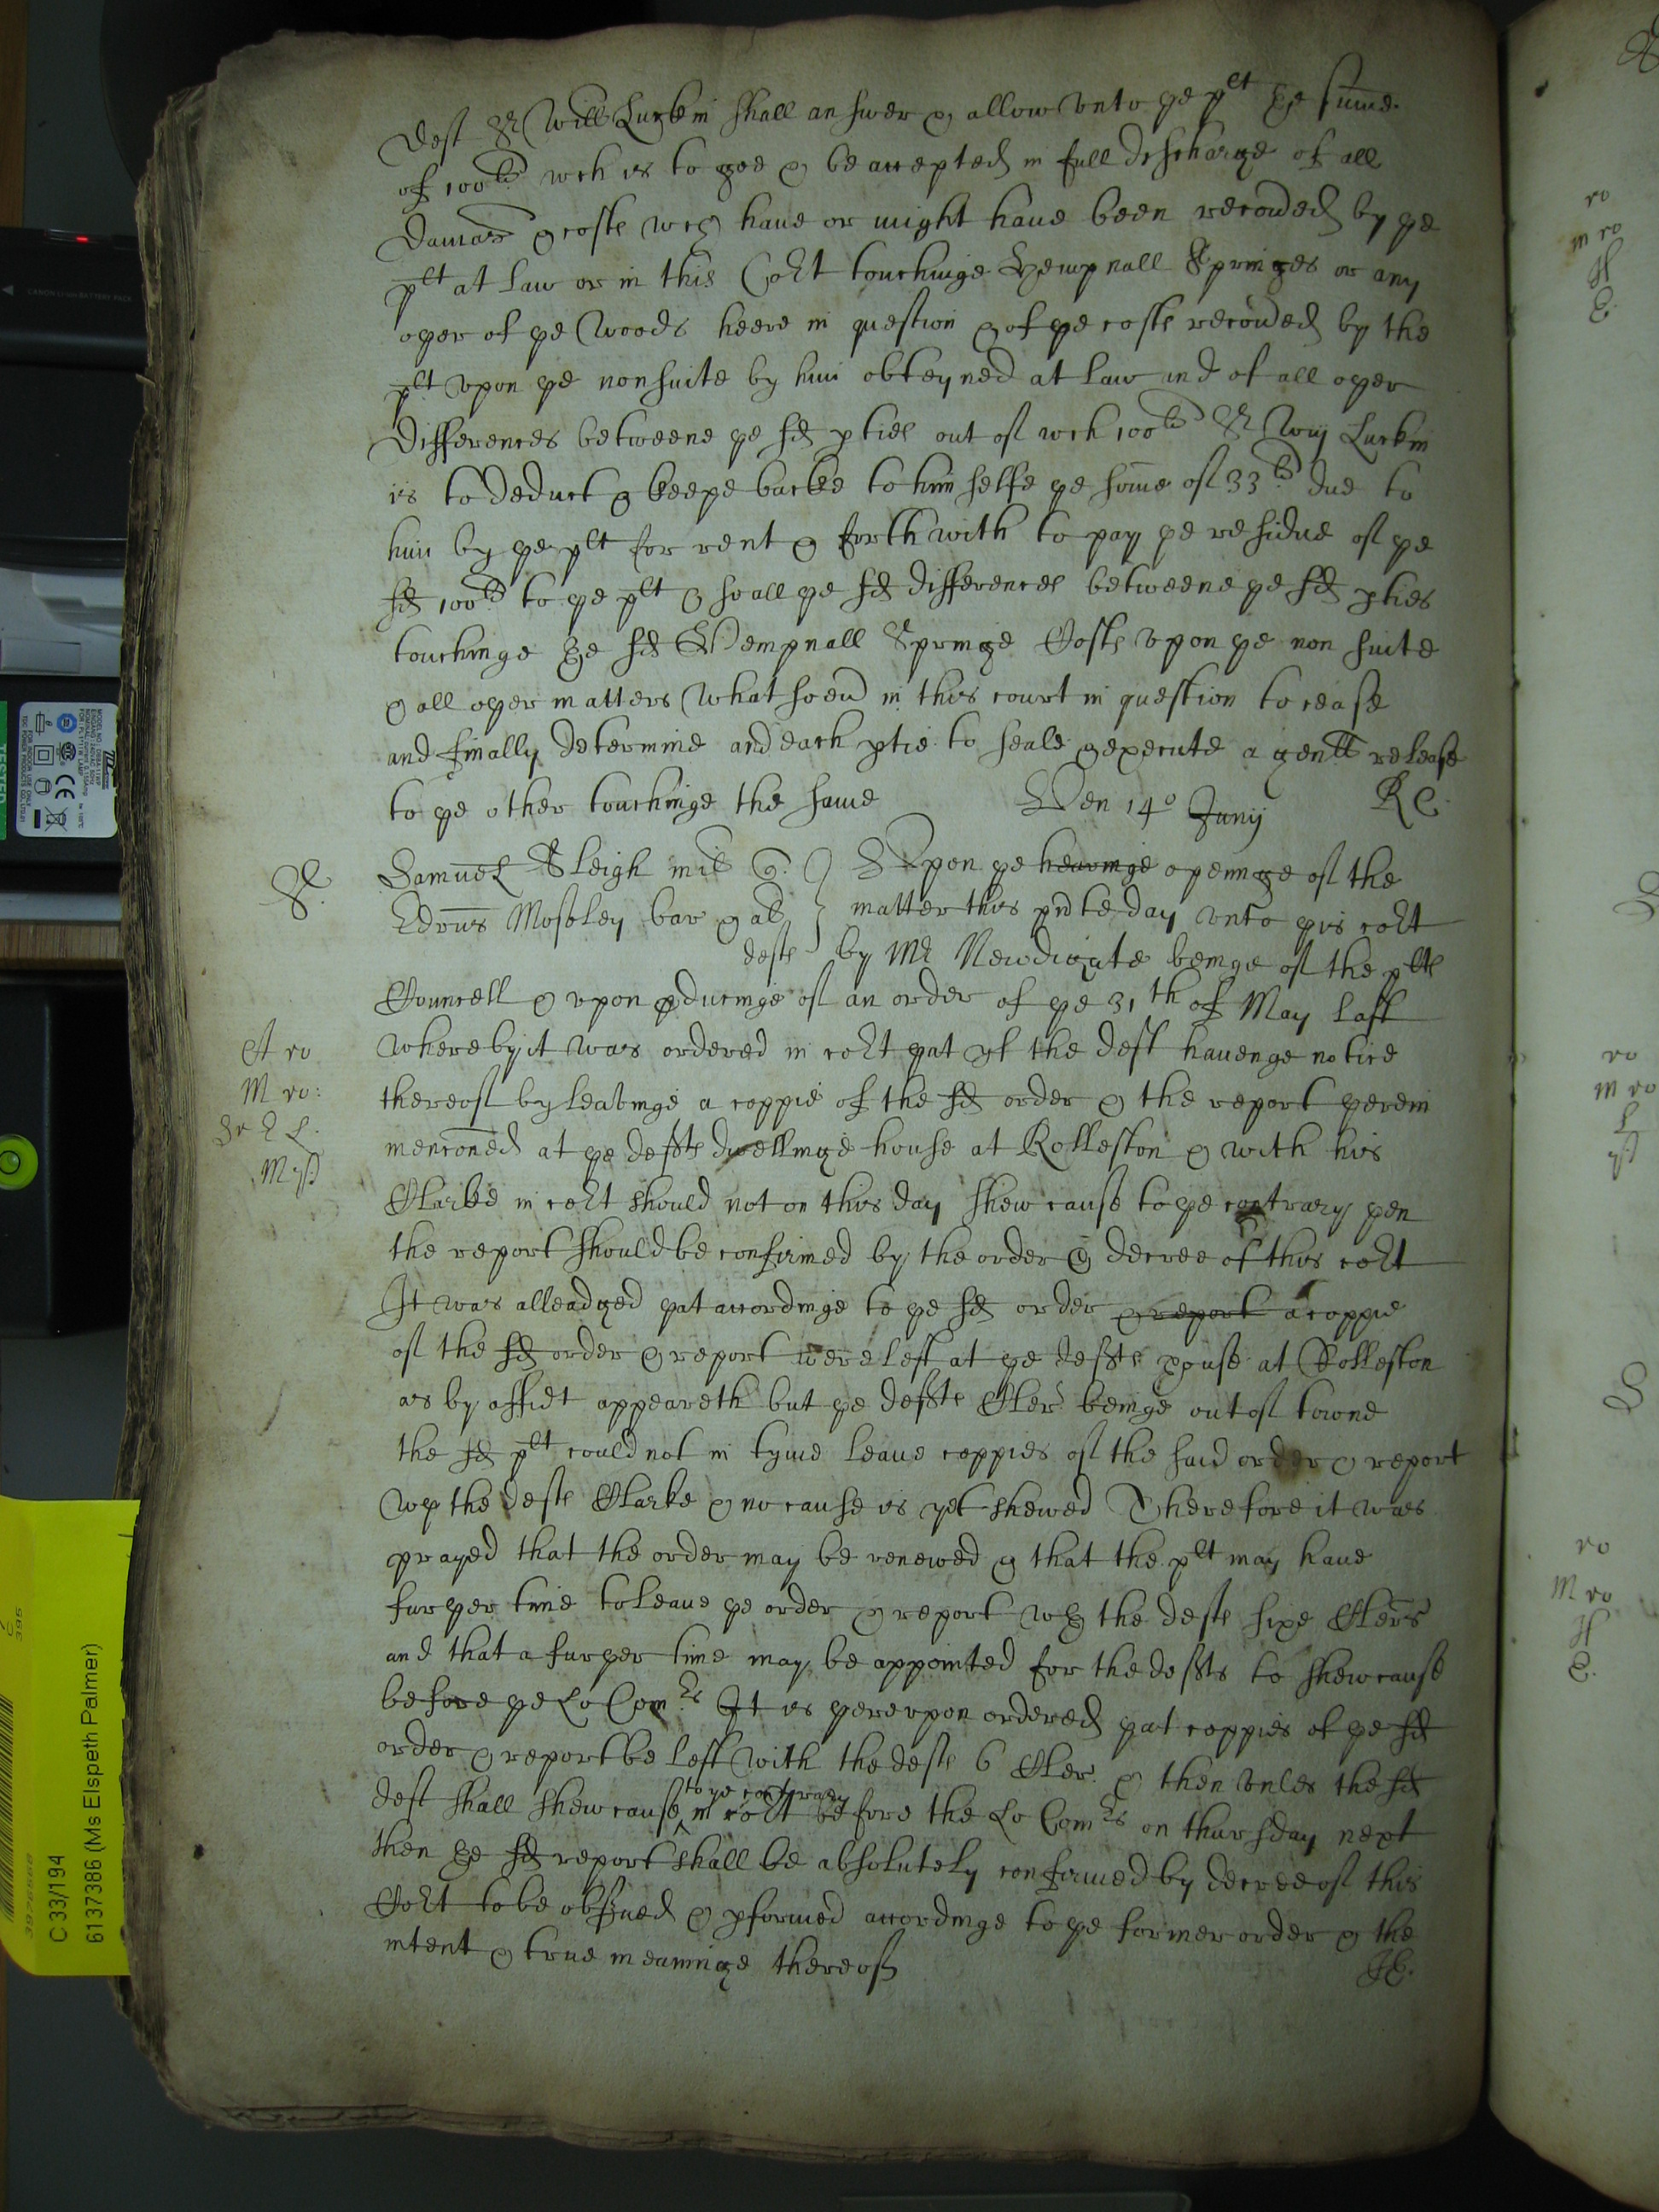 deft Sr Will Luckin shall answer & allow vnto ye plt ye sum̄e
of 100li wch is to goe & be accepted in full discharge of all
Damags & costs wch haue or might haue been recoued by ye
plt at law or in this Cort touchinge Hempnall Springes or any
oyer of ye Woods heere in question & of ye costs recoued by the
plt vpon ye nonsuite by him obteyned at law and of all oyer
Differences betweene ye sd pties out of wch 100li Sr Wm Luckin
is to deduct & keepe backe to himselfe ye som̄e of 33li due to
him by ye plt for rent & forthwith to pay ye residue of ye
sd 100li to ye plt & so all ye sd differences betweene ye sd pties
touchinge ye sd Hempnall Springe Costs vpon ye non suite
& all oyer matters whatsoeu in this court in question to cease
and finally determine and each ptie to seale & execute a genll release
to ye other touchinge the same Ven 14o Junij RC.
Samuel Sleigh mil Q. } Vpon ye hearinge openinge of the
Edrus Moseley bar & al } matter this pnte day vnto yis cort
defts by Mr Newdigate beinge of the plts
Councell & vpon pducinge of an order of ye 31th of May last
whereby it was ordered in cort yat yf the deft hauenge notice
thereof by leavinge a coppie of the sd order & the report yerein
menconed at ye defts dwellinge house at Rolleston & with his
Clarke in cort should not on this day shew cause to ye contrary yen
the report should be confirmed by the order & decree of this cort
It was alleadged yat accordinge to ye sd order & report a coppie
of the sd order & report were left at ye defts house at Rolleston
as by affidt appeareth but ye defts Cler beinge out of towne
the sd plt could not in tyme leaue coppies of the said order & report
wth the defts Clarke & no cause is yet shewed Therefore it was
prayed that the order may be renewed & that the plt may haue
furyer time to leaue ye order & report wth the defts sixe Clers
and that a furyer time may be appointed for the defts to shew cause
before ye Lo Comrs It is yerevpon ordered yat coppies of ye sd
order & report be left with the defts 6 Cler & then vnles the sd
to ye contrary
deft shall shew cause in cort before the Lo Comrs on thursday next
then ye sd report shall be absolutely confirmed by decree of this
Cort to be obserued & pformed accordinge to ye former order & the
intent & true meaninge thereof
M ro:
C 33/194
6137386 (Ms Elspeth Palmer)
39765598
CANON Li-ion BATTERY PACK
TESTED
ro
m ro
ro
m ro
ro
M ro